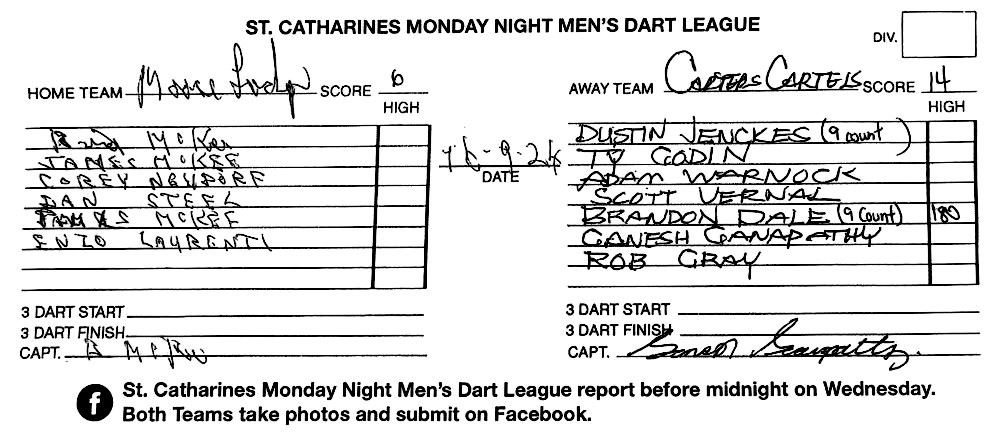 ST. CATHARINES MONDAY NIGHT MEN'S DART LEAGUE
DIV.
HOME TEAM Moose Lodge SCORE 6
HIGH
McKee
JAMES McKEE
COREY NEUDORF
DAN STEEL
JAMES McKEE
ENZO LAURENTI
3 DART START
3 DART FINISH
CAPT. B McKee
16-9-24
DATE
AWAY TEAM CARTERS CARTELS SCORE 14
HIGH
DUSTIN JENCKES (9 count)
TY GODIN
ADAM WARNOCK
SCOTT VERNAL
BRANDON DALE (9 count) 180
GANESH GANAPATHY
ROB GRAY
3 DART START
3 DART FINISH
CAPT. Ganesh Ganapathy
f St. Catharines Monday Night Men's Dart League report before midnight on Wednesday.
Both Teams take photos and submit on Facebook.